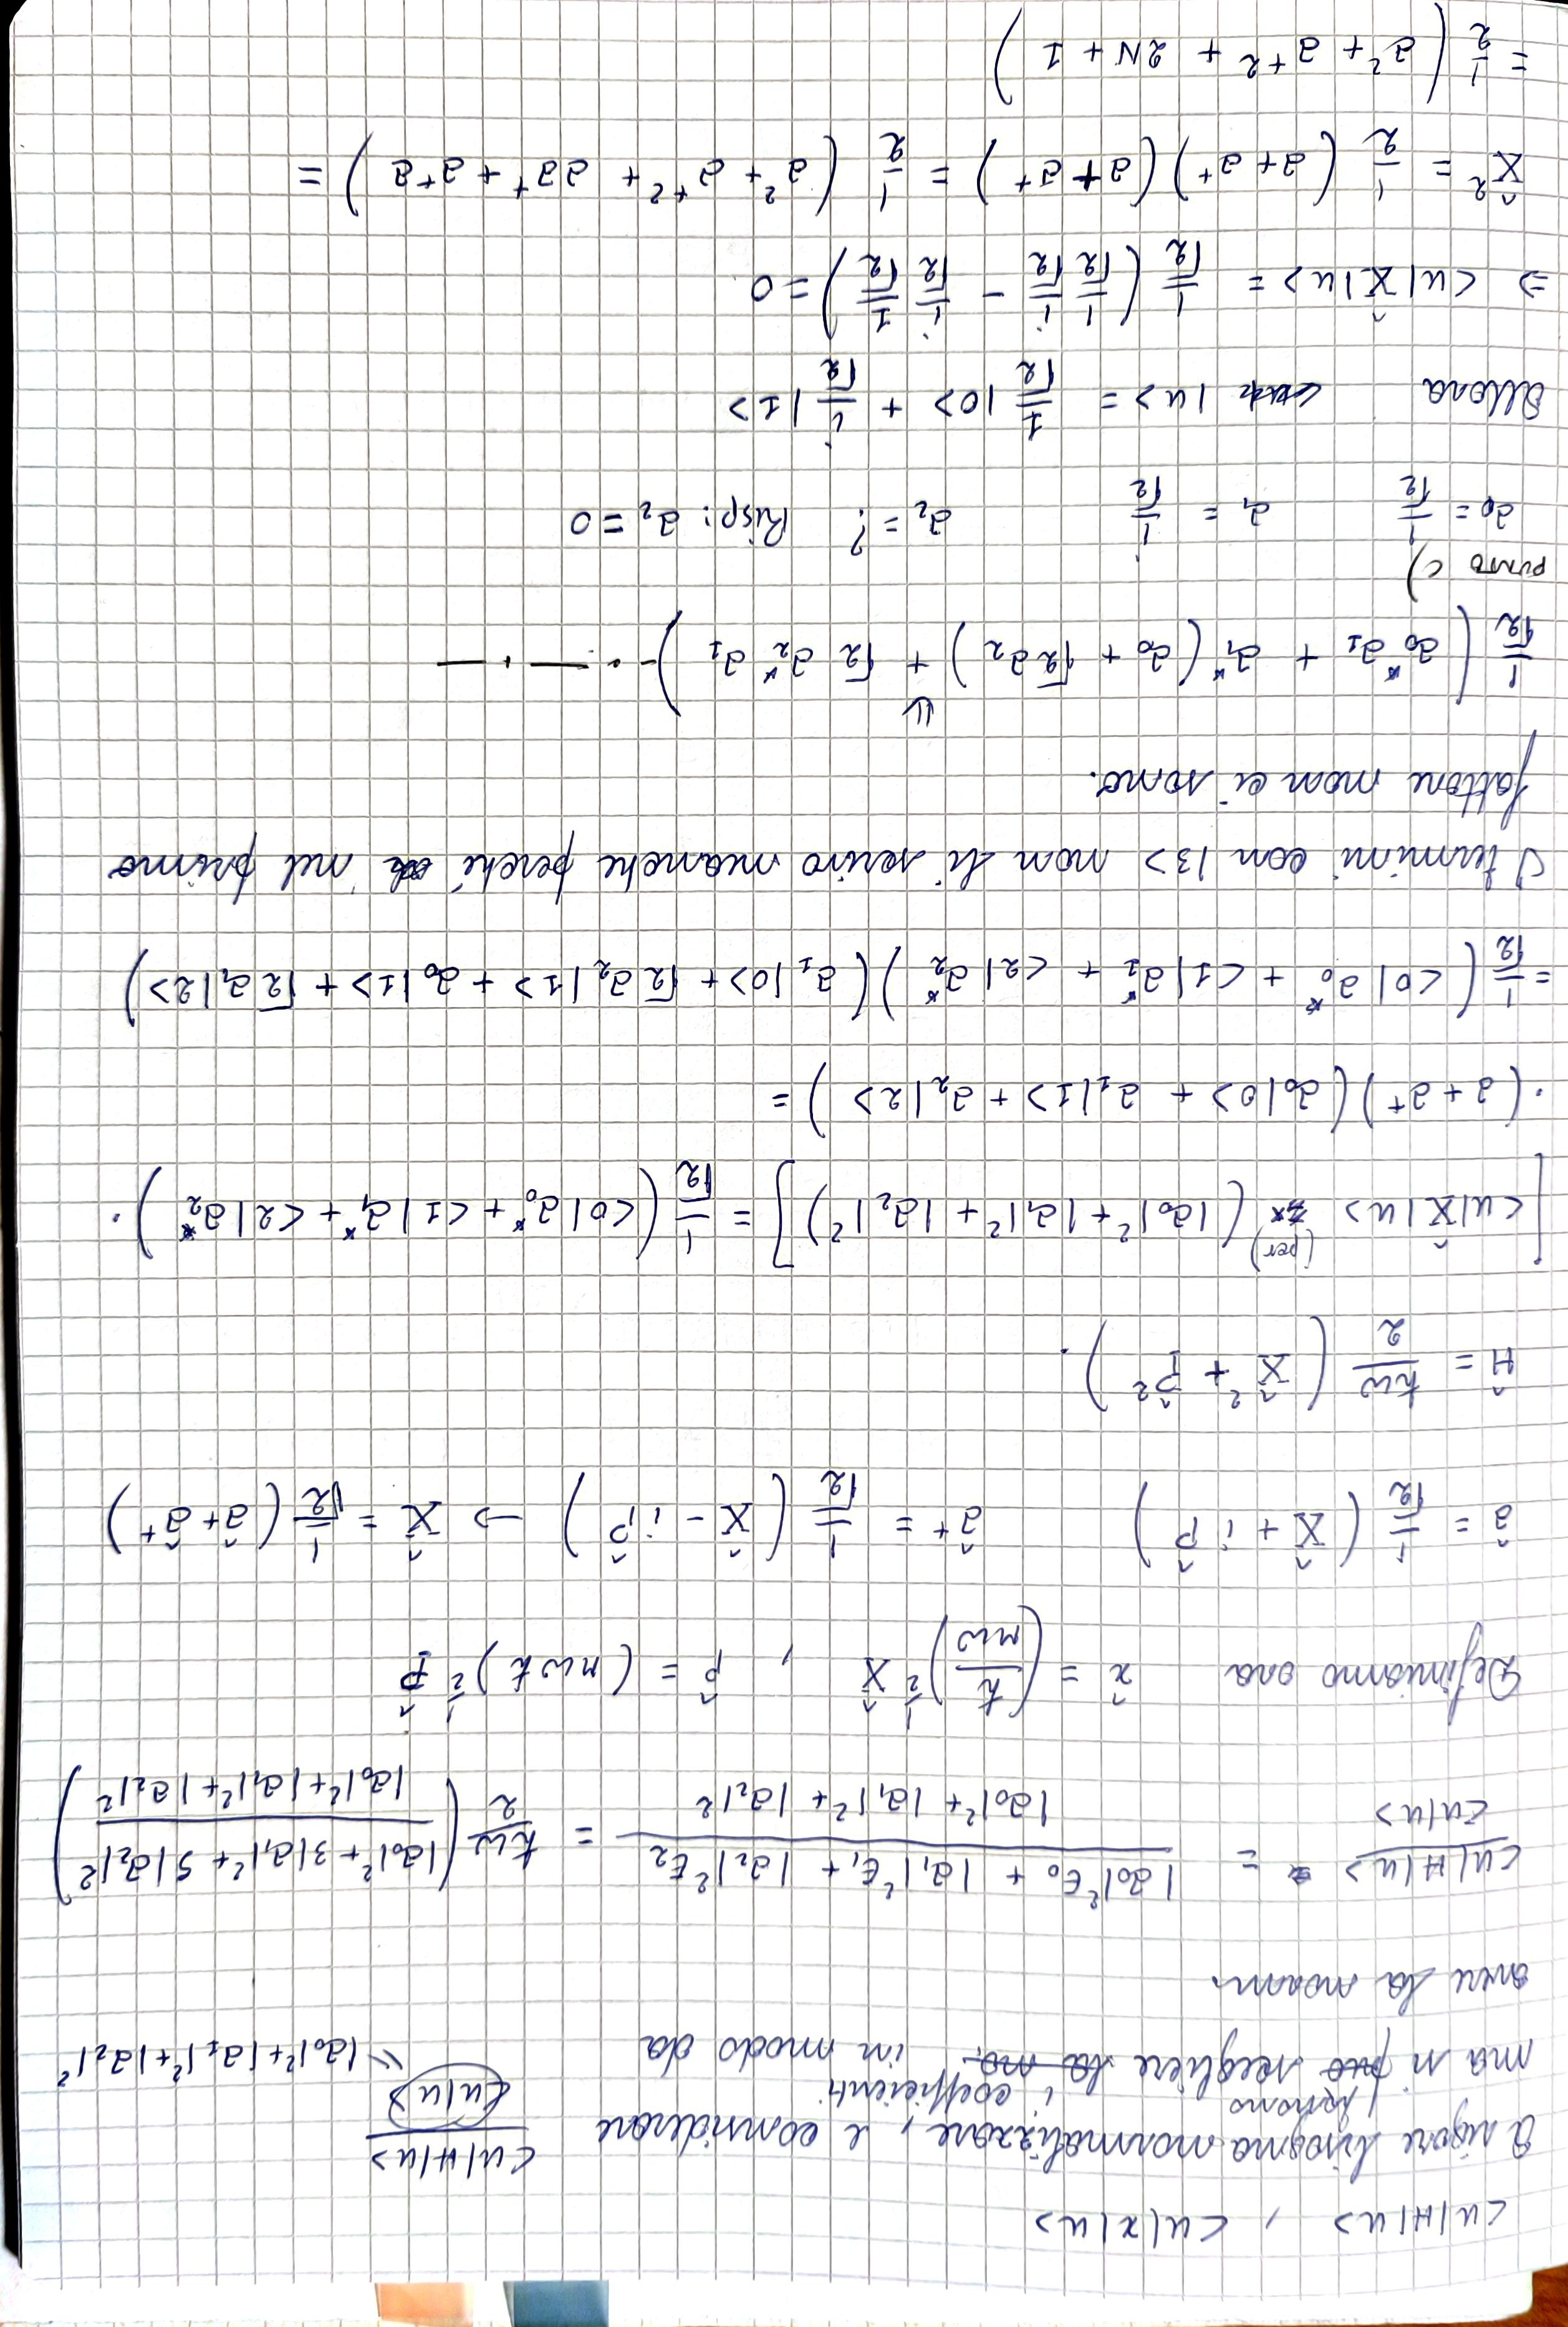 <u|H|u> , <u|x|u>
A rigore bisogna normalizzare, e considerare <u|H|u> / <u|u> → |a₀|²+|a₁|²+|a₂|²
ma si possono scegliere i coefficienti in modo da
avere la norma
<u|H|u> / <u|u> = (|a₀|²E₀ + |a₁|²E₁ + |a₂|²E₂) / (|a₀|² + |a₁|² + |a₂|²) = ħω/2 ( (|a₀|² + 3|a₁|² + 5|a₂|²) / (|a₀|²+|a₁|²+|a₂|²) )
Definiamo ora x̂ = (ħ/mω)^½ X̂ , p̂ = (mωħ)^½ P̂
â = 1/√2 (X̂ + iP̂) â⁺ = 1/√2 (X̂ - iP̂) → X̂ = 1/√2 (â+â⁺)
Ĥ = ħω/2 (X̂² + P̂²).
[<u|X̂|u> (per) (|a₀|²+|a₁|²+|a₂|²)] = 1/√2 (<0|a₀* + <1|a₁* + <2|a₂*) ·
· (a + a⁺)(a₀|0> + a₁|1> + a₂|2>) =
= 1/√2 (<0|a₀* + <1|a₁* + <2|a₂*)(a₁|0> + √2 a₂|1> + a₀|1> + √2 a₁|2>)
I termini con |3> non li scrivo neanche perché nel primo
fattore non ci sono.
⇓
1/√2 (a₀*a₁ + a₁*(a₀ + √2 a₂) + √2 a₂*a₁) -·—·—
PUNTO C)
a₀ = 1/√2 a₁ = i/√2 a₂ = ? Risp: a₂ = 0
Allora |u> = 1/√2 |0> + i/√2 |1>
⇒ <u|X̂|u> = 1/√2 (1/√2 i/√2 - i/√2 1/√2) = 0
X̂² = 1/2 (a + a⁺)(a + a⁺) = 1/2 (a² + a⁺² + aa⁺ + a⁺a) =
= 1/2 (a² + a⁺² + 2N + 1)